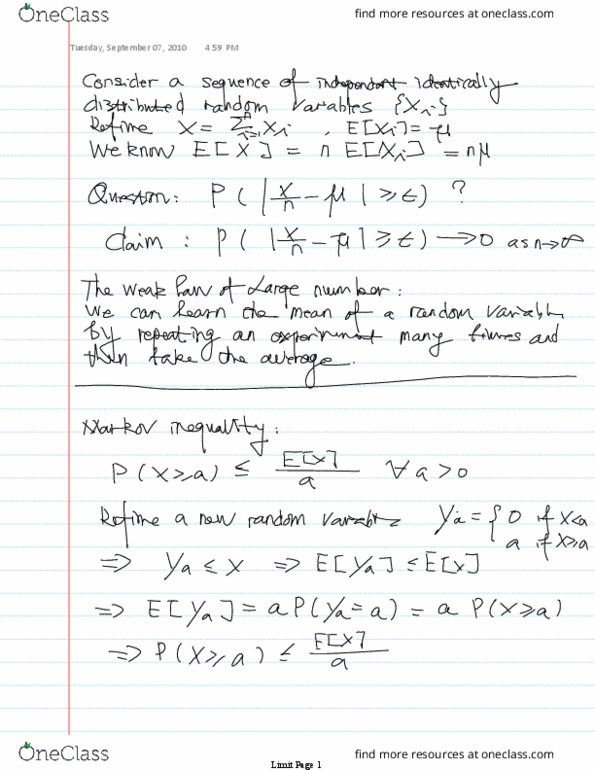 OneClass
find more resources at oneclass.com
Tuesday, September 07, 2010 4:59 PM
Consider a sequence of independent identically
distributed random variables {Xi}
Define X = Σⁿᵢ₌₁ Xi , E[Xi] = μ
We know E[X] = n E[Xi] = nμ
Question: P( |X/n − μ| ⩾ ε) ?
Claim : P( |X/n − μ| ⩾ ε) → 0 as n→∞
The Weak Law of Large number:
We can learn the mean of a random variable
by repeating an experiment many times and
then take the average.
Markov inequality:
P(X⩾a) ≤ E[X]/a ∀ a > 0
Define a new random variable Ya = { 0 if X<a
a if X⩾a
⇒ Ya ≤ X ⇒ E[Ya] ≤ E[X]
⇒ E[Ya] = a P(Ya = a) = a P(X⩾a)
⇒ P(X⩾a) ≤ E[X]/a
OneClass
find more resources at oneclass.com
Limit Page 1